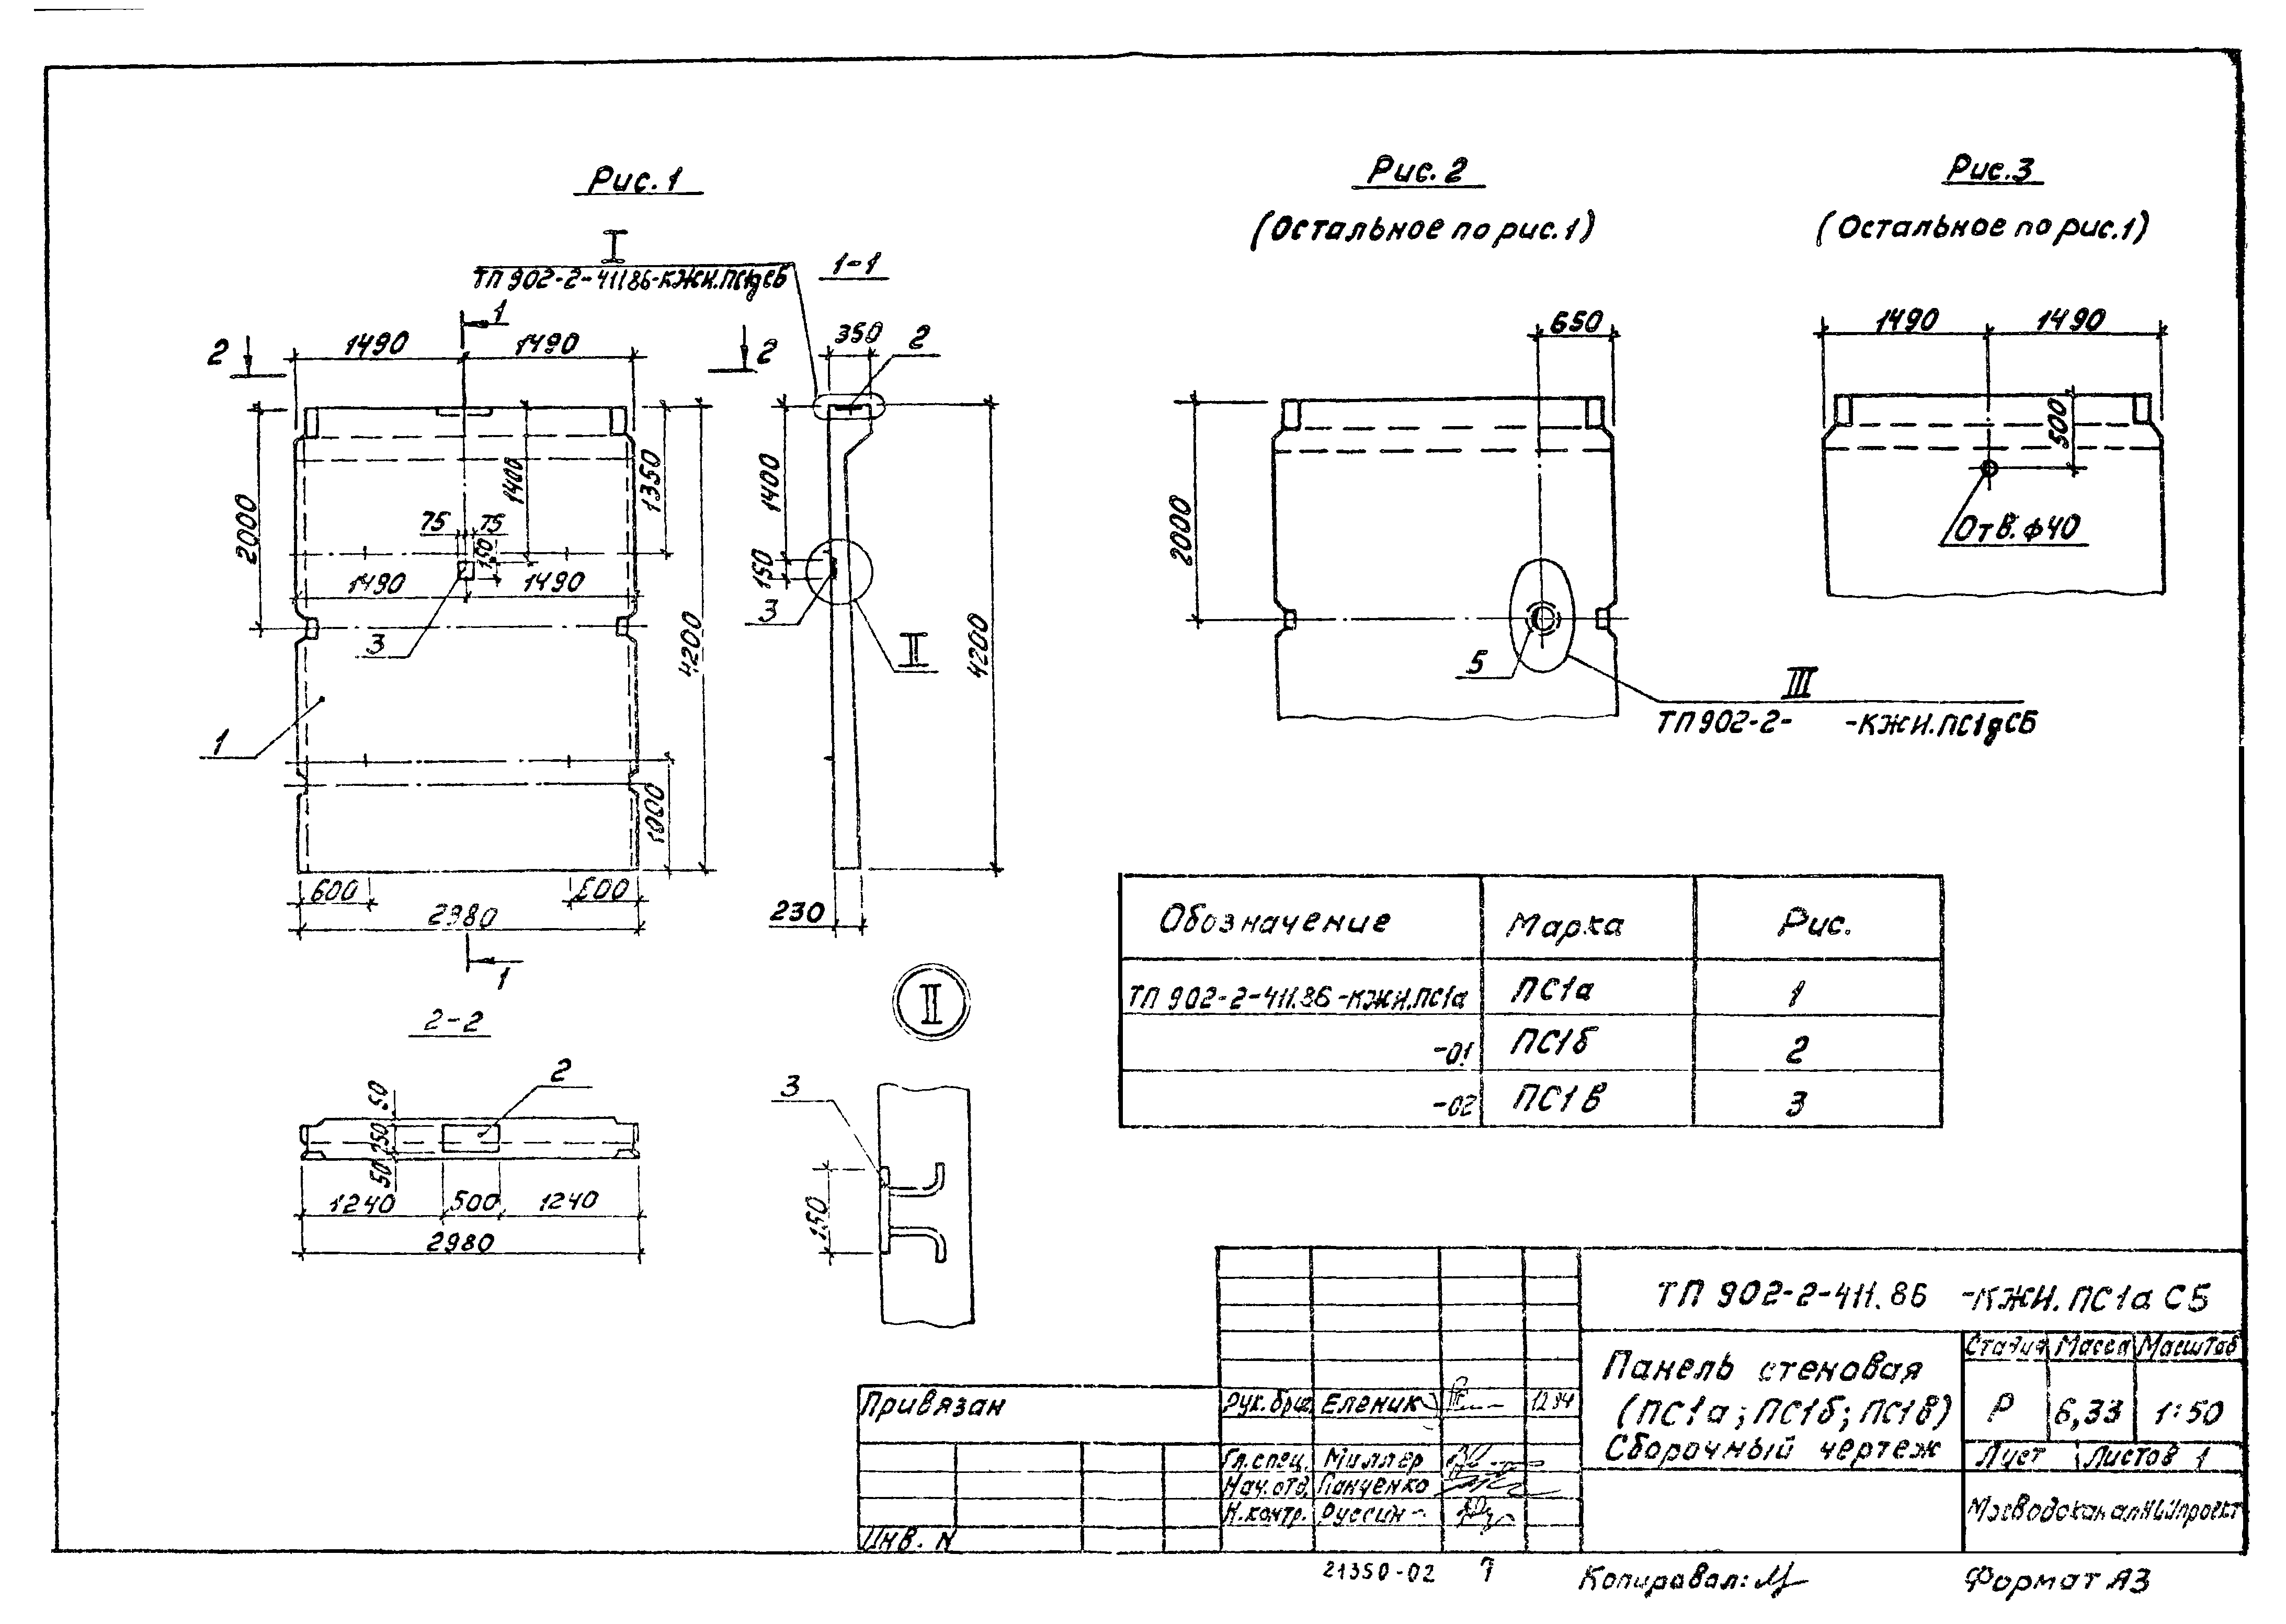 Рис. 1
I
ТП 902-2-41186-КЖИ.ПС1дСБ
1-1
1
2
1490
1490
2
350
2
2000
1400
1350
1400
75
75
150
150
1490
1490
3
3
4200
4200
II
1
1000
600
600
2980
230
1
2-2
2
50
250
50
1240
500
1240
2980
II
3
150
Рис. 2
(Остальное по рис. 1)
650
2000
5
III
ТП 902-2- -КЖИ.ПС1дСБ
Рис. 3
(Остальное по рис. 1)
1490
1490
500
Отв. ф40
Обозначение Марка Рис.
ТП 902-2-411.86-КЖИ.ПС1а ПС1а 1
-01 ПС1б 2
-02 ПС1в 3
ТП 902-2-411.86 -КЖИ.ПС1а СБ
Панель стеновая
(ПС1а; ПС1б; ПС1в)
Сборочный чертеж
Стадия Масса Масштаб
Р 6,33 1:50
Лист Листов 1
Мосводоканалниипроект
Привязан
Инв. N
Рук. бриг. Еленик
Гл. спец. Миллер
Нач. отд. Панченко
Н. контр. Руссин
21350-02 7
Копировал:
Формат А3